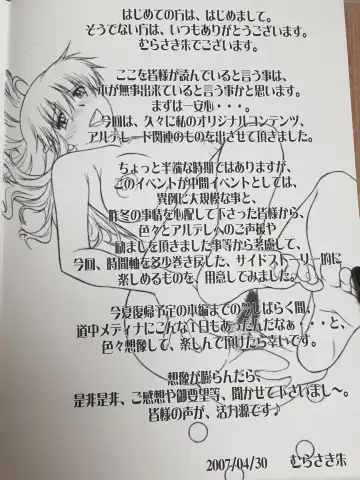 はじめての方は、はじめまして。
そうでない方は、いつもありがとうございます。
むらさき朱でございます。
ここを皆様が読んでいると言う事は、
本が無事出来ていると言う事かと思います。
まずは一安心・・・。
今回は、久々に私のオリジナルコンテンツ、
アルテレード関連のものを出させて頂きました。
ちょっと半端な時期ではありますが、
このイベントが中間イベントとしては、
異例に大規模な事と、
昨冬の事情を心配して下さった皆様から、
色々とアルテレへのご声援や
励ましを頂きました事等から考慮して、
今回、時間軸を多少巻き戻した、サイドストーリー的に
楽しめるものを、用意してみました。
今夏復帰予定の本編までの今しばらく間、
道中メディナにこんな１日もあったんだなぁ・・・と、
色々想像して、楽しんで頂けたら幸いです。
想像が膨らんだら、
是非是非、ご感想や御要望等、聞かせて下さいまし～。
皆様の声が、活力源です♪
2007/04/30 むらさき朱